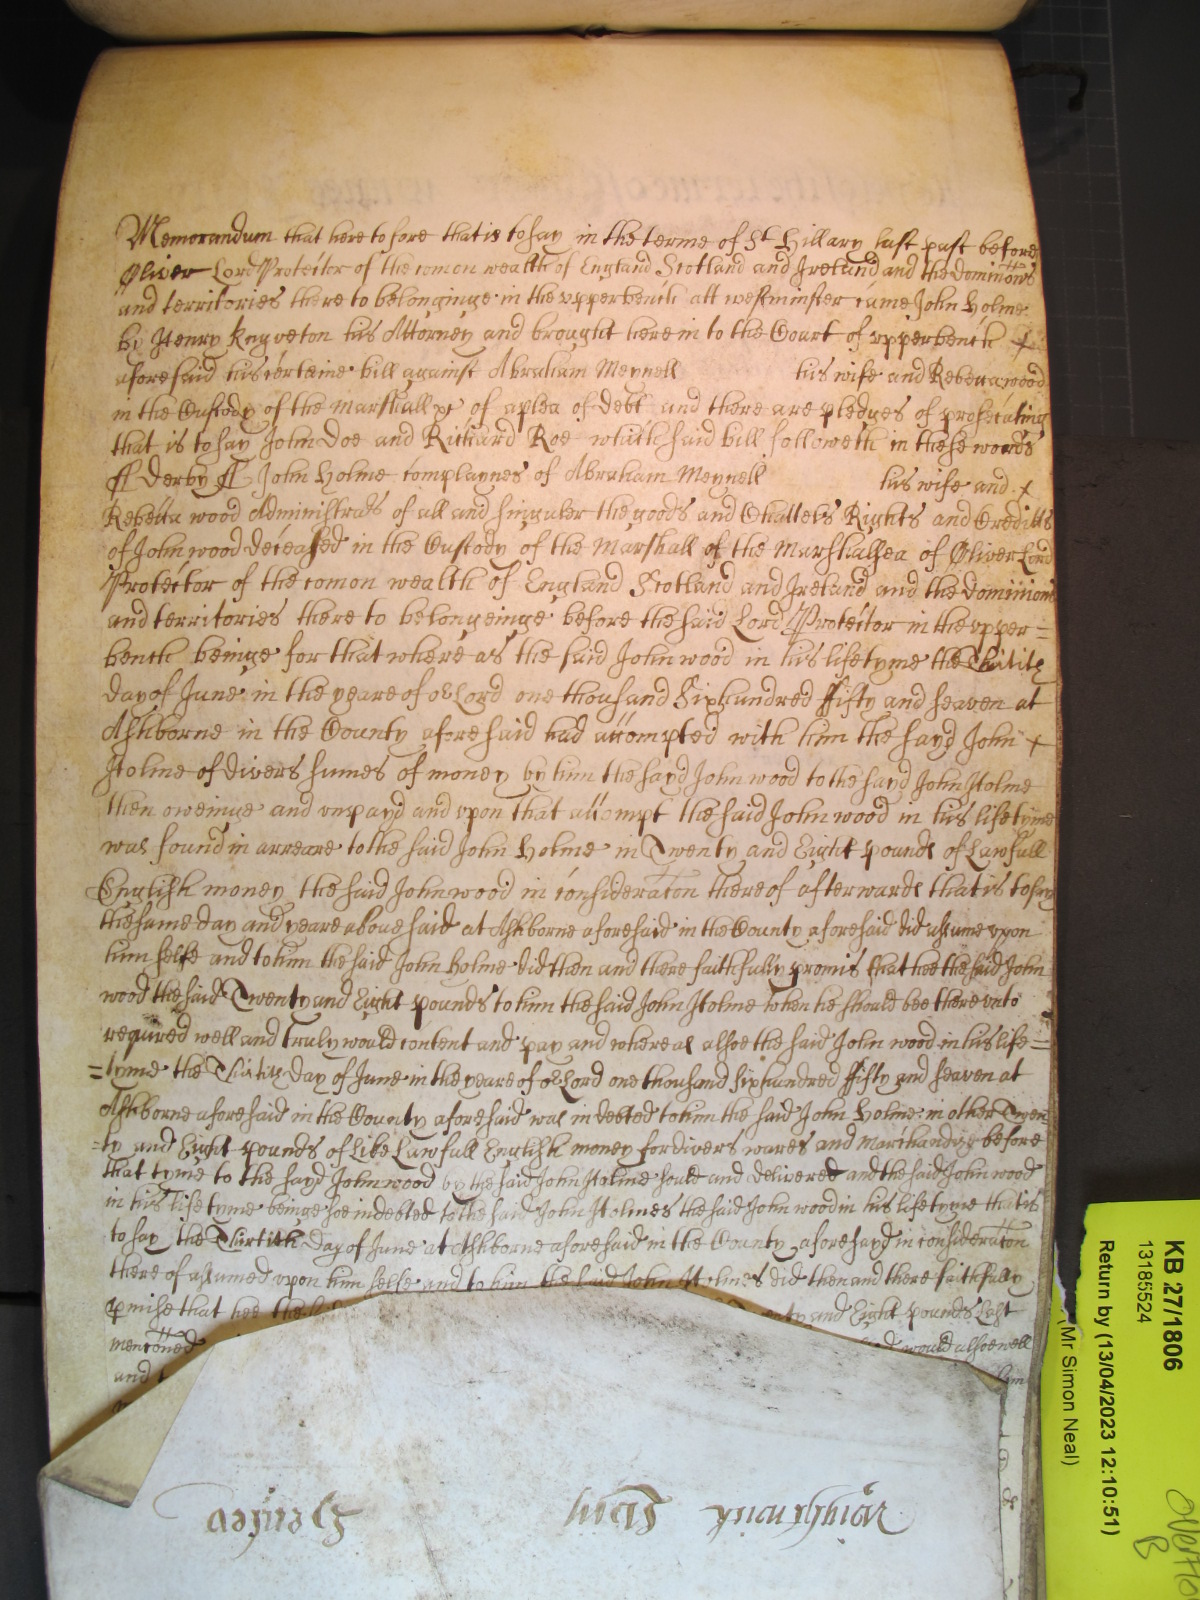 Memorandum that here to fore that is to say in the terme of St Hillary last past before
Oliver Lord Protector of the comon wealth of England Scotland and Ireland and the dominions
and territories there to belonginge in the upper bench att westminster came John Holme
by Henry Knyveton his Attorney and brought here in to the Court of upper bench
aforesaid his certaine bill against Abraham Meynell his wife and Rebecca wood
in the Custody of the Marshall &c of a plea of debt and there are pledges of prosecuting
that is to say John Doe and Richard Roe which said bill followeth in these words
ff Derby ff John Holme complaynes of Abraham Meynell his wife and
Rebecca wood Administrators of all and singuler the goods and Chattels Rights and Creditts
of John wood deceased in the Custody of the Marshall of the Marshalsea of Oliver Lord
Protector of the comon wealth of England Scotland and Ireland and the dominions
and territories there to belongeinge before the said Lord Protector in the upper =
bench beinge for that where as the said John wood in his lifetyme the Thirtith
day of June in the yeare of or Lord one thousand Six hundred ffifty and seaven at
Ashborne in the County aforesaid had accompted with him the sayd John
Holme of divers sumes of money by him the sayd John wood to the sayd John Holme
then oweinge and unpayd and upon that accompt the said John wood in his lifetyme
was found in arreare to the said John Holme in Twenty and Eight pounds of Lawfull
English money the said John wood in consideraton there of afterwards that is to say
the same day and yeare above said at Ashborne aforesaid in the County aforesaid did assume upon
him selfe and to him the said John Holme did then and there faithfully promis that hee the said John
wood the said Twenty and Eight pounds to him the said John Holme when he should bee there unto
required well and truly would content and pay and whereas alsoe the said John wood in his life =
= tyme the Thirtith day of June in the yeare of or Lord one thousand Six hundred ffifty and seaven at
Ashborne aforesaid in the County aforesaid was indebted to him the said John Holme in other Twen
= ty and Eight pounds of Like Lawfull English money for divers wares and marchandizes before
that tyme to the sayd John wood by the said John Holme sould and delivered and the said John wood
in his lifetyme beinge soe indebted to the said John Holmes the said John wood in his lifetyme that is
to say the Thirtith day of June at Ashborne aforesaid in the County aforesayd in consideraton
there of assumed upon him selfe and to him the said John Holmes did then and there faithfully
pmise that hee the Eight pounds Last
mentoned would alsoe well
and
KB 27/1806
13185524
Return by (13/04/2023 12:10:51)
(Mr Simon Neal)